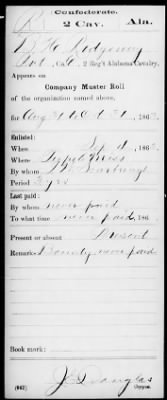 Confederate.
2 Cav. Ala.
Ridgeway
Pvt., Co. 2 Reg't Alabama Cavalry.
Appears on
Company Muster Roll
of the organization named above,
for Aug 31 to Oct 31, 186
Enlisted:
When Sept 186
Where Miss
By whom
Period 3 yrs
Last paid:
By whom never paid
To what time never paid, 186
Present or absent Present
Remarks: Bounty never paid
Book mark:
(642) Douglas
Copyist.